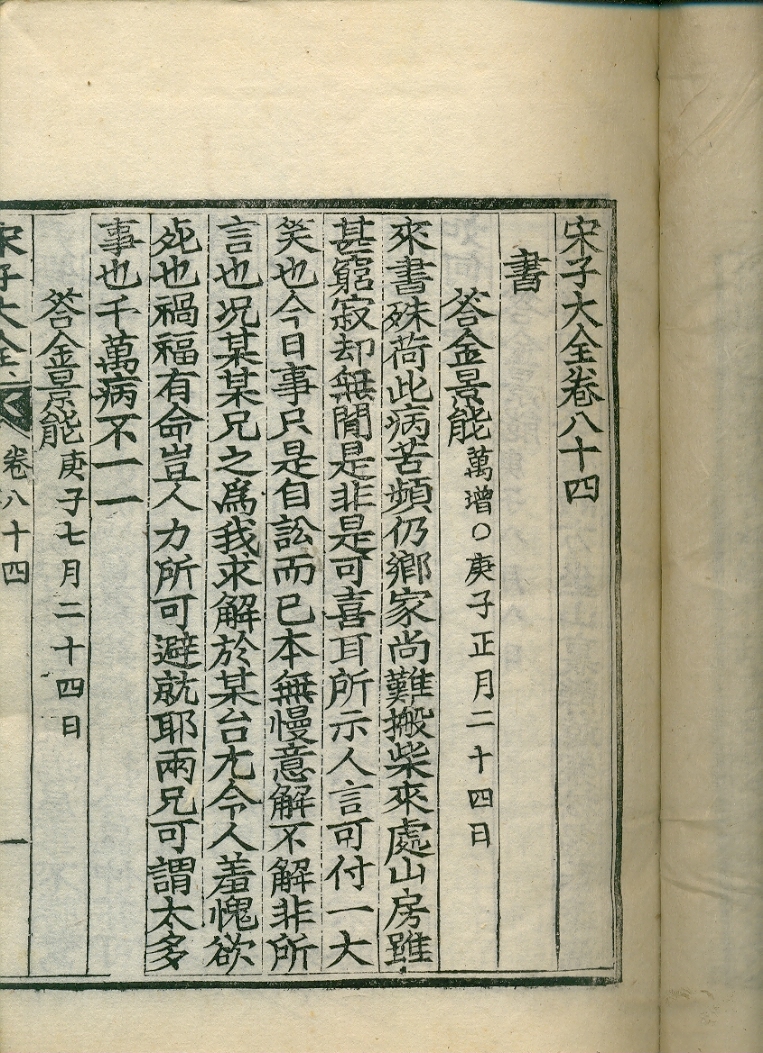 宋子大全卷八十四
書
答金景能萬增○庚子正月二十四日
來書殊荷此病苦頻仍鄉家尚難搬柴來處山房雖
甚窮寂却無閒是非是可喜耳所示人言可付一大
笑也今日事只是自訟而已本無慢意解不解非所
言也况某某兄之爲我求解於某台尤令人羞愧欲
死也禍福有命豈人力所可避就耶兩兄可謂太多
事也千萬病不一一
答金景能庚子七月二十四日
宋子大全 卷八十四 一